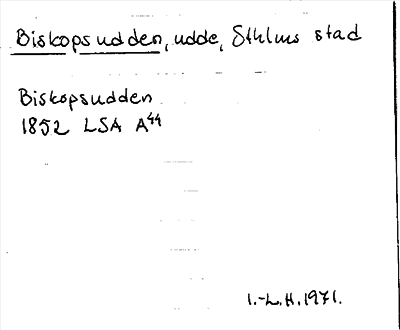 Biskopsudden, udde, Sthlms stad
Biskopsudden
1852 LSA A44
I.-L.H. 1971.